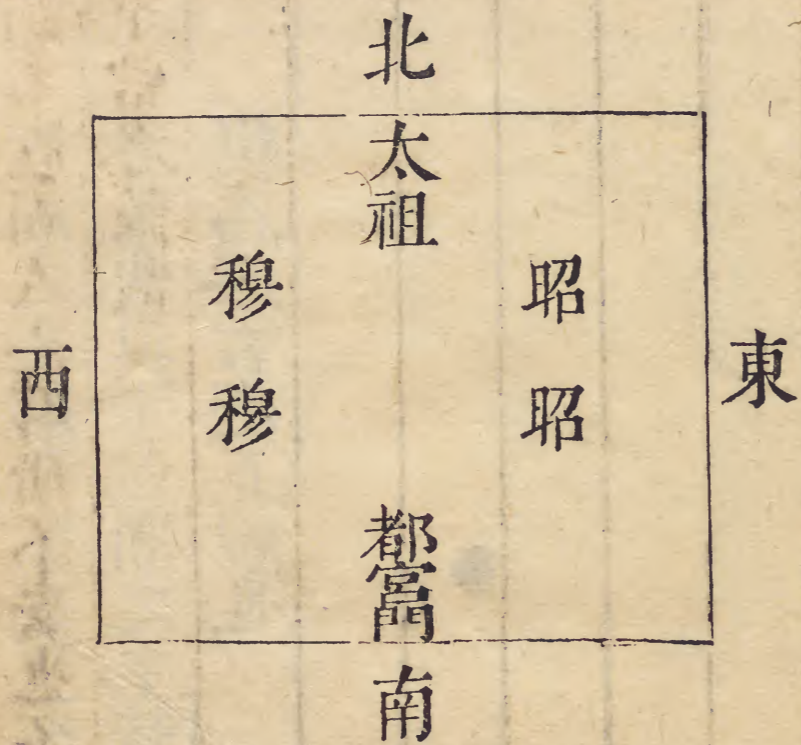 北
太祖
昭
昭
穆
穆
東
西
都宮門
南